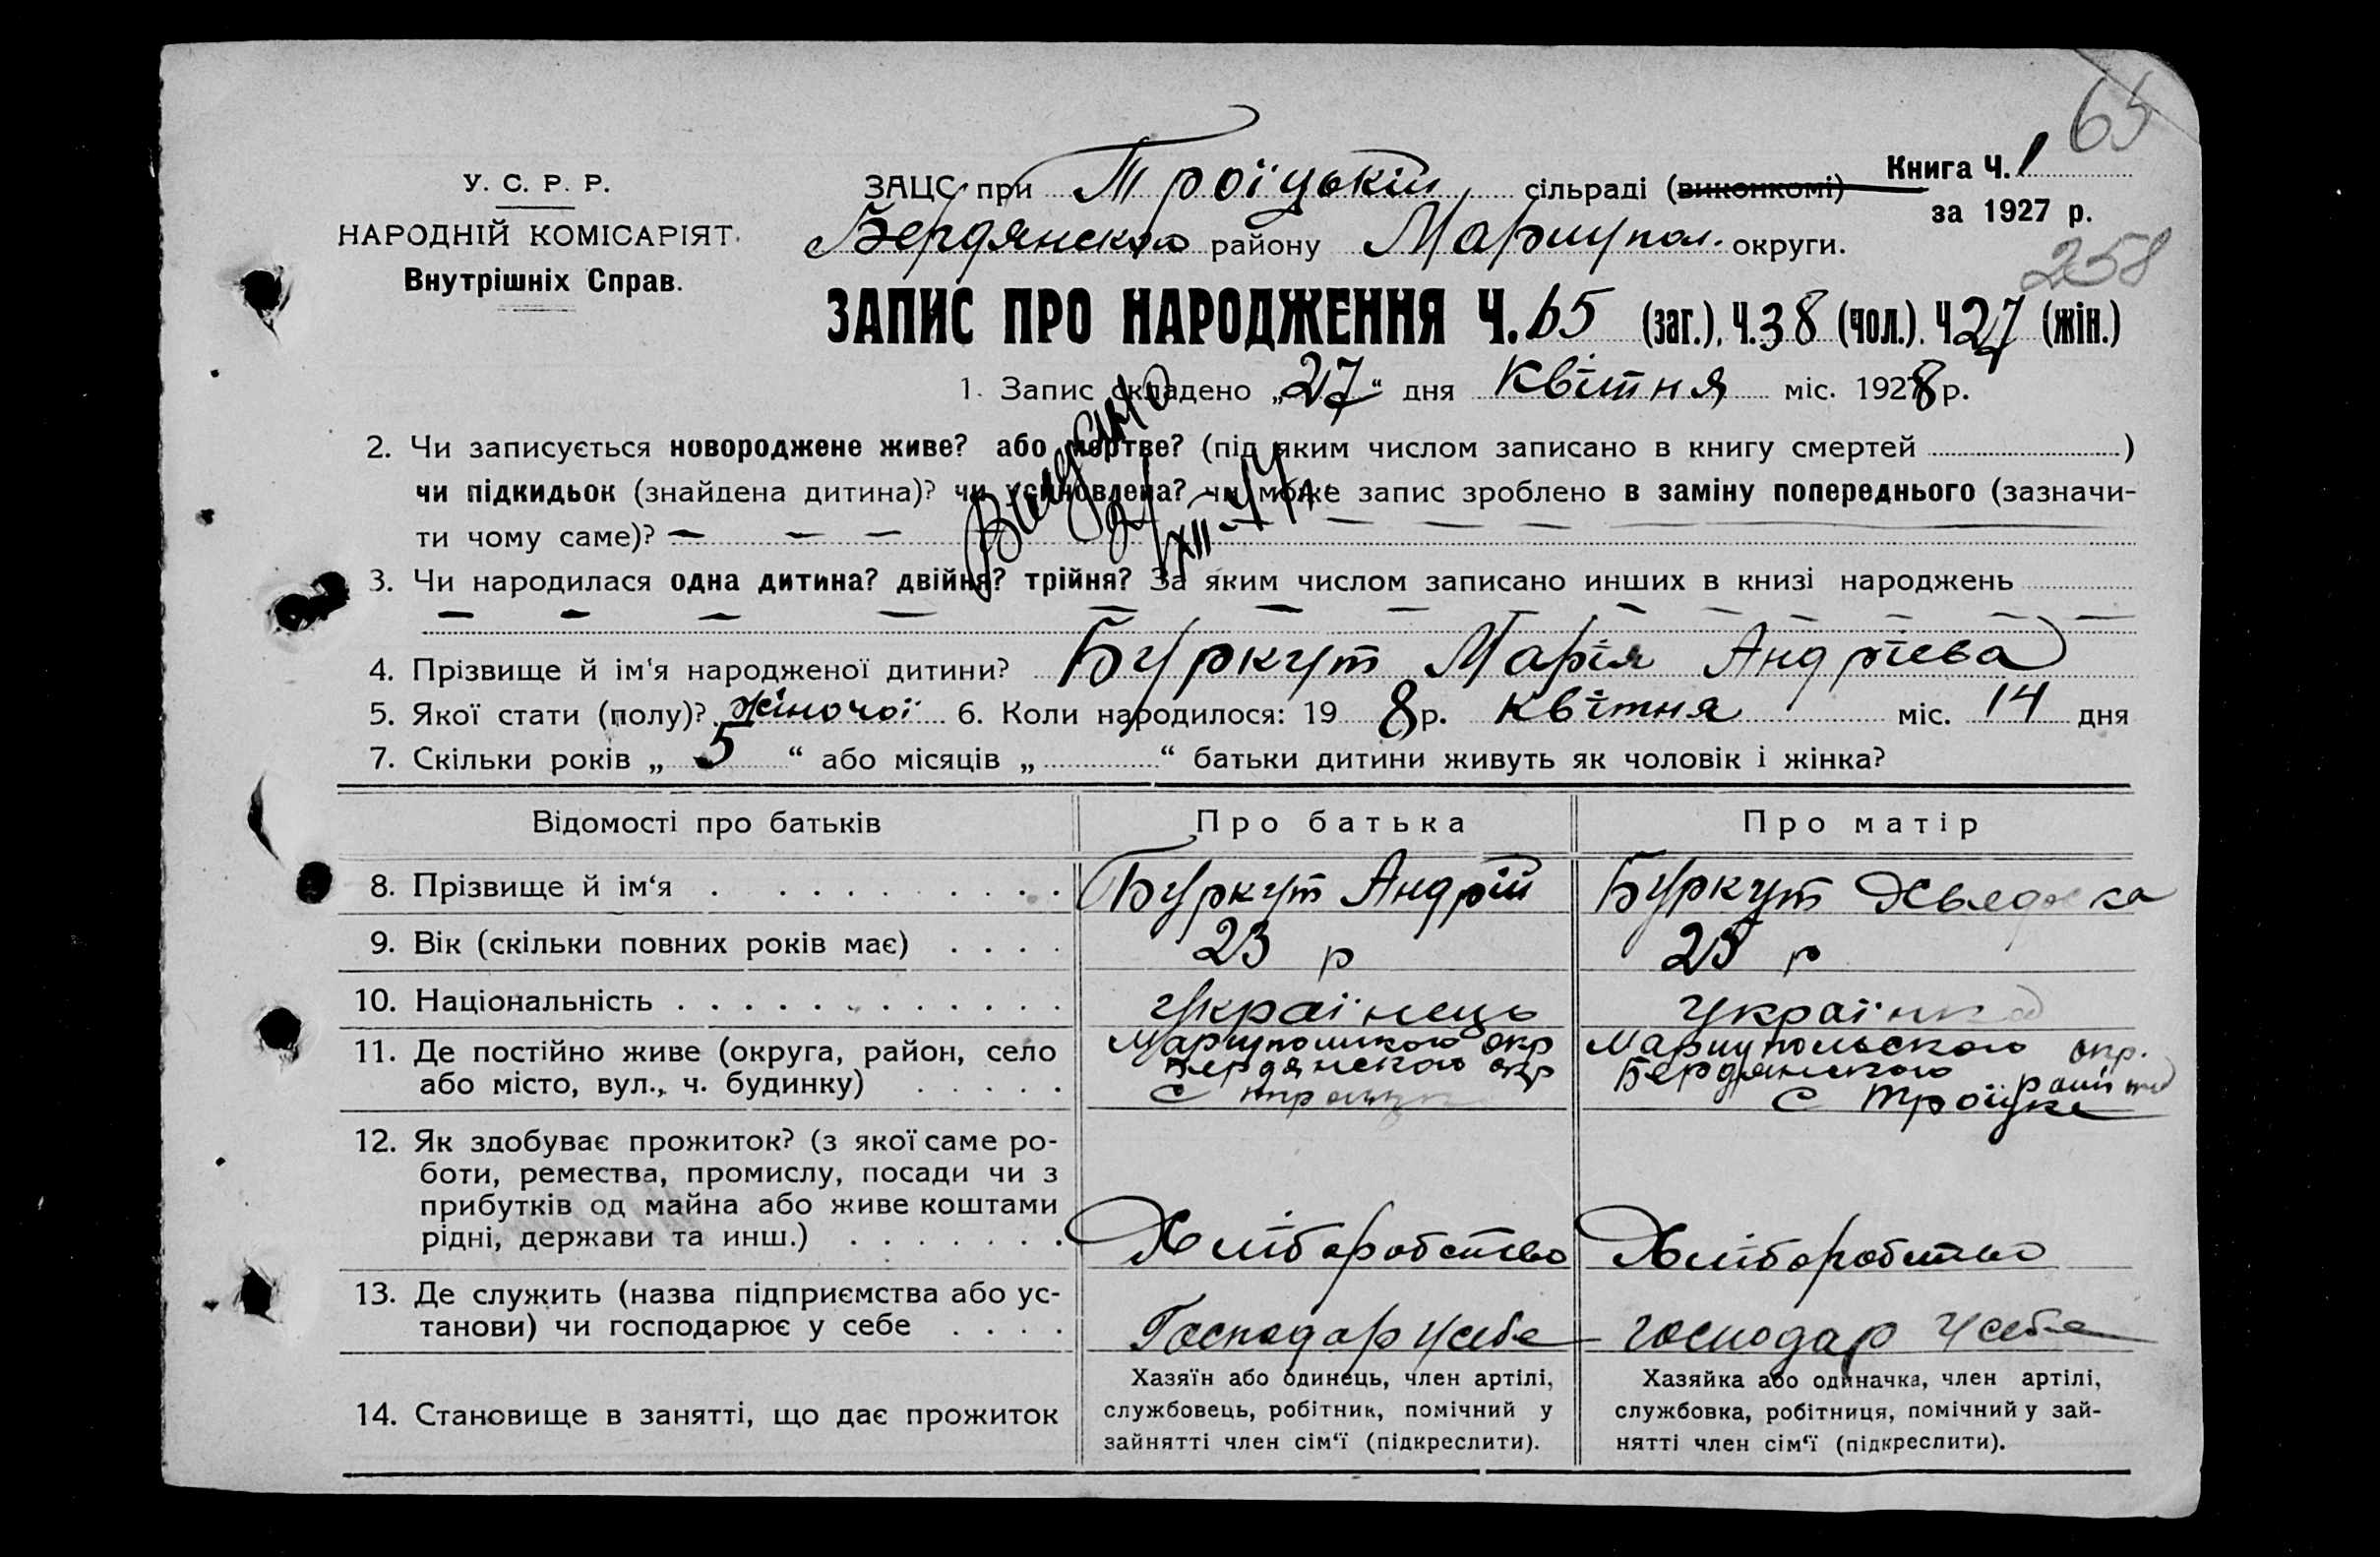 65
У. С. Р. Р.
НАРОДНІЙ КОМІСАРІЯТ
Внутрішніх Справ.
ЗАЦС при Троїцькій сільраді (виконкомі)
Книга Ч. 1
за 1927 р.
Бердянского району Мариупол. округи.
258
ЗАПИС ПРО НАРОДЖЕННЯ Ч. 65 (заг.), Ч. 38 (чол.). Ч 27 (жін.)
1. Запис складено „27“ дня Квітня міс. 1928 р.
2. Чи записується новороджене живе? або мертве? (під яким числом записано в книгу смертей )
чи підкидьок (знайдена дитина)? чи усиновлена? чи може запис зроблено в заміну попереднього (зазначи-
ти чому саме)? — — —
3. Чи народилася одна дитина? двійня? трійня? За яким числом записано инших в книзі народжень
4. Прізвище й ім'я народженої дитини? Буркут Марія Андрієва
5. Якої стати (полу)? жіночої 6. Коли народилося: 19 8 р. квітня міс. 14 дня
7. Скільки років „ 5 “ або місяців „ “ батьки дитини живуть як чоловік і жінка?
Відомості про батьків Про батька Про матір
8. Прізвище й ім‘я Буркут Андрій Буркут
9. Вік (скільки повних років має) 23 р 25 р
10. Національність Українець Українка
11. Де постійно живе (округа, район, село
або місто, вул., ч. будинку)
окр
Бердянского окр
с
Мариупольского окр.
Бердянского
с Троїцке
12. Як здобуває прожиток? (з якої саме ро-
боти, ремества, промислу, посади чи з
прибутків од майна або живе коштами
рідні, держави та инш.)
Хліборобство Хліборобство
13. Де служить (назва підприємства або ус-
танови) чи господарює у себе
Господар у себе господар у себе
14. Становище в занятті, що дає прожиток
Хазяїн або одинець, член артілі,
службовець, робітник, помічний у
зайнятті член сім‘ї (підкреслити).
Хазяйка або одиначка, член артілі,
службовка, робітниця, помічний у зай-
нятті член сім‘ї (підкреслити).